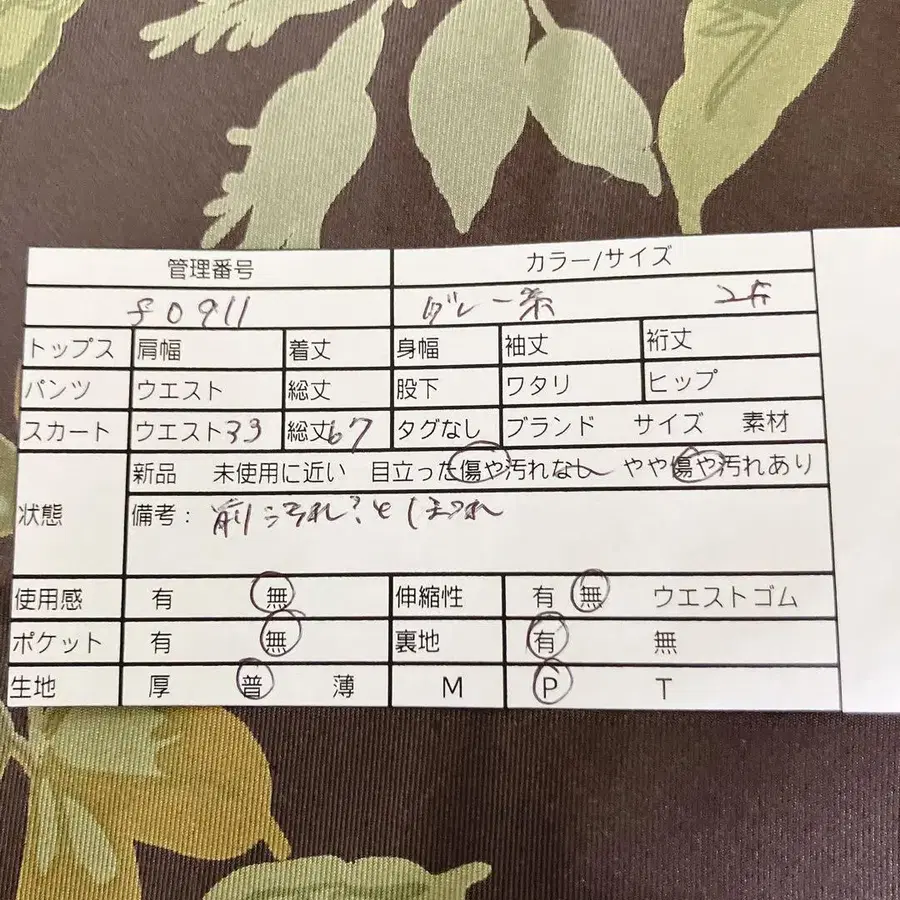 管理番号 カラー/サイズ
f0911 グレー系
トップス 肩幅 着丈 身幅 袖丈 裄丈
パンツ ウエスト 総丈 股下 ワタリ ヒップ
スカート ウエスト33 総丈67 タグなし ブランド サイズ 素材
新品 未使用に近い 目立った傷や汚れなし やや傷や汚れあり
状態 備考: 前 汚れ?と
使用感 有 無 伸縮性 有 無 ウエストゴム
ポケット 有 無 裏地 有 無
生地 厚 普 薄 M P T